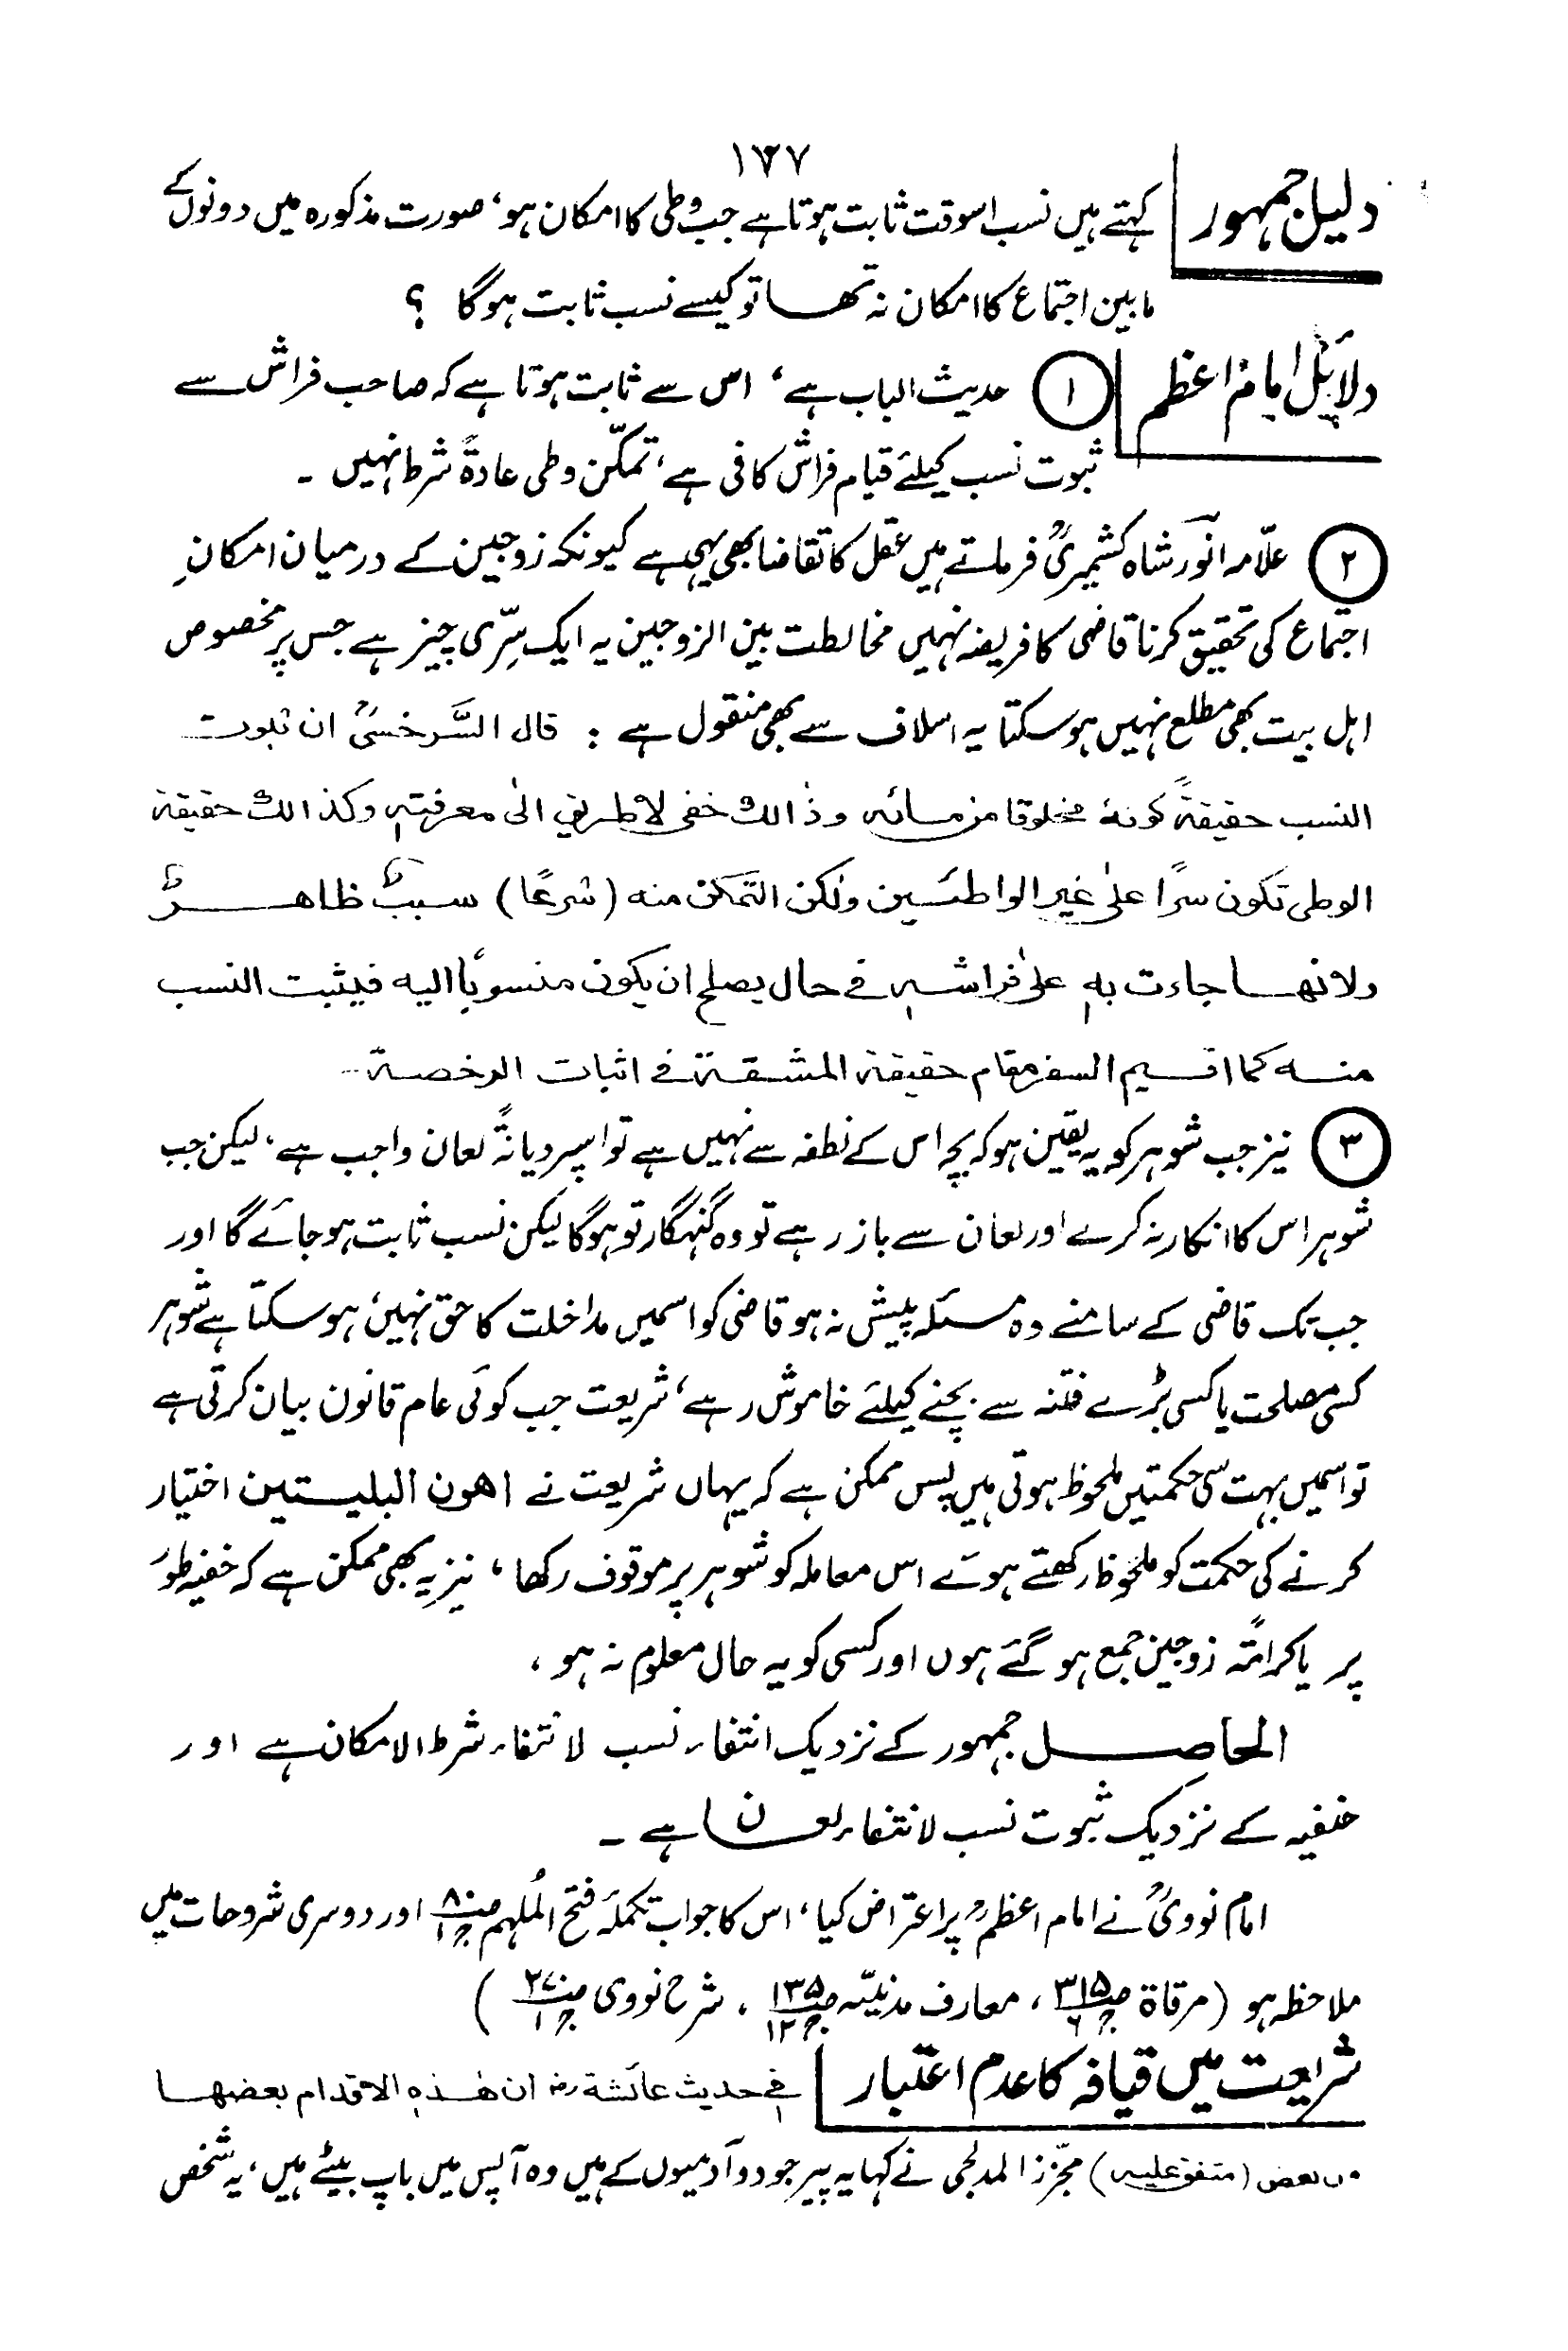 ۱۲۷
دلیل جمہور کہتے ہیں نسب اسوقت ثابت ہوتا ہے جب وطی کا امکان ہو، صورت مذکورہ میں دونوں کے
مابین اجتماع کا امکان نہ تھا تو کیسے نسب ثابت ہوگا ؟
دلائل امام اعظم ① حدیث الباب ہے، اس سے ثابت ہوتا ہے کہ صاحب فراش سے
ثبوت نسب کیلئے قیام فراش کافی ہے، تمکّن وطی عادةً شرط نہیں ۔
② علّامہ انور شاہ کشمیریؒ فرماتے ہیں عقل کا تقاضا بھی یہی ہے کیونکہ زوجین کے درمیان امکانِ
اجتماع کی تحقیق کرنا قاضی کا فریضہ نہیں مخالطت بین الزوجین یہ ایک سِرّی چیز ہے جس پر مخصوص
اہل بیت بھی مطلع نہیں ہوسکتا یہ اسلاف سے بھی منقول ہے : قال السَّرخسیؒ ان ثبوت
النسب حقیقةً کونهٗ مخلوقا من مائه وذٰالك خفی لا طریق الیٰ معرفته وکذالك حقیقة
الوطی تکون سرًا علیٰ غیر الواطئین ولٰکن التَّمکن منه (شرعًا) سببٌ ظاهرٌ
ولانها جاءت به علیٰ فراشه فی حال یصلح ان یکون منسوبًا الیه فیثبت النسب
منه کما اقیم السفر مقام حقیقة المشقة فی اثبات الرخصة۔
③ نیز جب شوہر کو یہ یقین ہو کہ بچہ اس کے نطفہ سے نہیں ہے تو اسپر دیانةً لعان واجب ہے، لیکن جب
شوہر اس کا انکار نہ کرے اور لعان سے باز رہے تو وہ گنہگار تو ہوگا لیکن نسب ثابت ہوجائے گا اور
جب تک قاضی کے سامنے وہ مسئلہ پیش نہ ہو قاضی کو اسمیں مداخلت کا حق نہیں، ہوسکتا ہے شوہر
کسی مصلحت یا کسی بڑے فتنہ سے بچنے کیلئے خاموش رہے، شریعت جب کوئی عام قانون بیان کرتی ہے
تو اسمیں بہت سی حکمتیں ملحوظ ہوتی ہیں پس ممکن ہے کہ یہاں شریعت نے اهون البلیتین اختیار
کرنے کی حکمت کو ملحوظ رکھتے ہوئے اس معاملہ کو شوہر پر موقوف رکھا، نیز یہ بھی ممکن ہے کہ خفیہ طور
پر یا کرامتہً زوجین جمع ہوگئے ہوں اور کسی کو یہ حال معلوم نہ ہو ،
الحاصل جمہور کے نزدیک انتفاء نسب لانتفاء شرط الامکان ہے اور
حنفیہ کے نزدیک ثبوت نسب لانتفاء لعان ہے ۔
امام نوویؒ نے امام اعظمؒ پر اعتراض کیا، اس کا جواب تکملۂ فتح المُلہم ص۸۰ ج۱ اور دوسری شروحات میں
ملاحظہ ہو (مرقاة ص۳۱۵ ج۶ ، معارف مدنیّہ ص۱۳۵ ج۱۲ ، شرح نووی ص۴۷۰ ج۱ )
شریعت میں قیافہ کا عدم اعتبار فی حدیث عائشة رض ان هٰذه الاقدام بعضها
من بعض (متفق علیه) مجزّز المدلجی نے کہا یہ پیر جو دو آدمیوں کے ہیں وہ آپس میں باپ بیٹے ہیں، یہ شخص